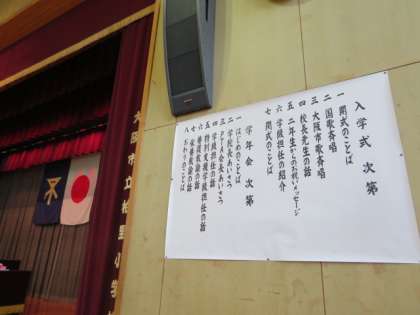 入学式 次第
一 開式のことば
二 国歌斉唱
三 大阪市歌斉唱
四 校長先生の話
五 二年生からのお祝いメッセージ
六 学級担任の紹介
七 閉式のことば
学年会 次第
一 はじめのことば
二 学校長あいさつ
三 PTA会長あいさつ
四 学級担任の話
五 特別支援学級担任の話
六 養護教諭の話
七 栄養教諭の話
八 おわりのことば
大阪市立
小学